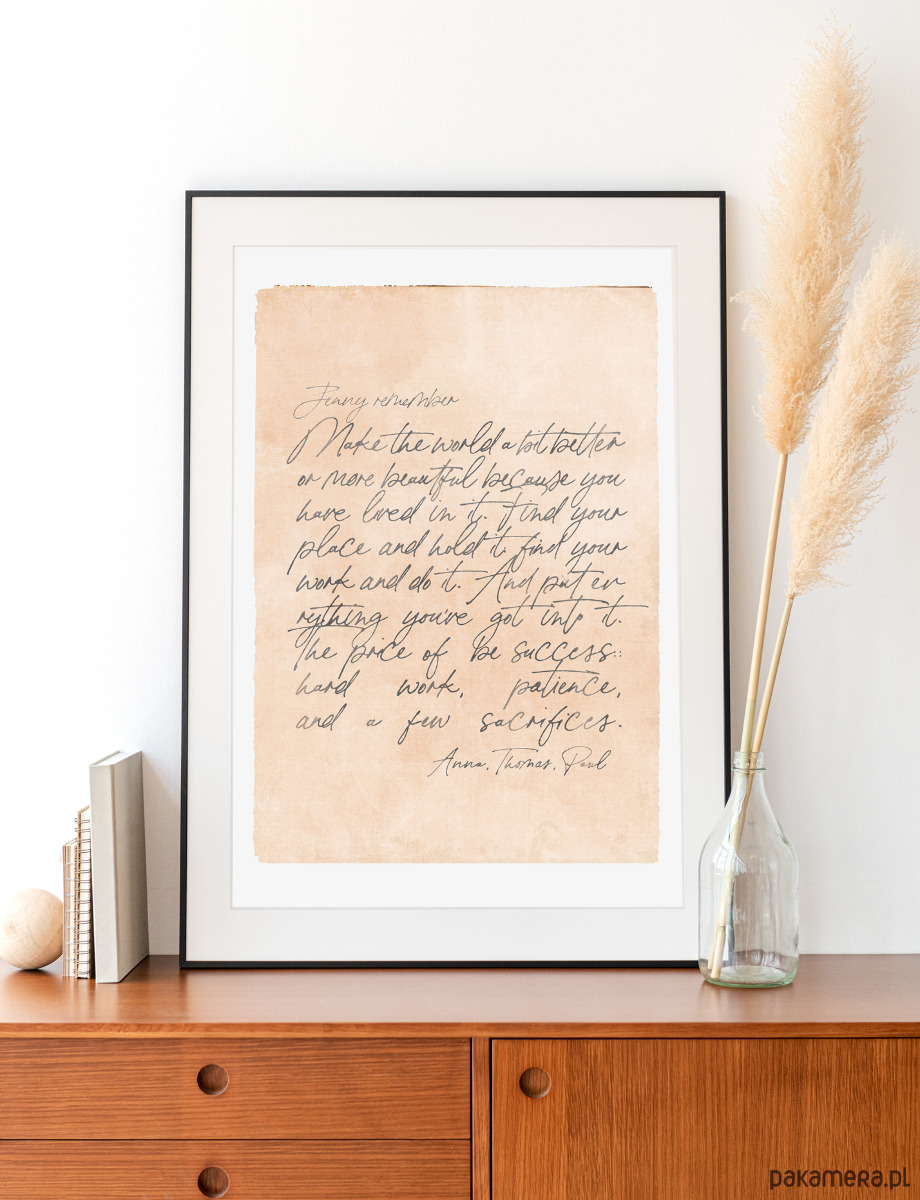 Jenny remember
Make the world a bit better
or more beautiful because you
have lived in it. Find your
place and hold it, find your
work and do it. And put ev
rything you've got into it.
The price of be success::
hard work, patience,
and a few sacrifices.
Anna, Thomas, Paul
pakamera.pl